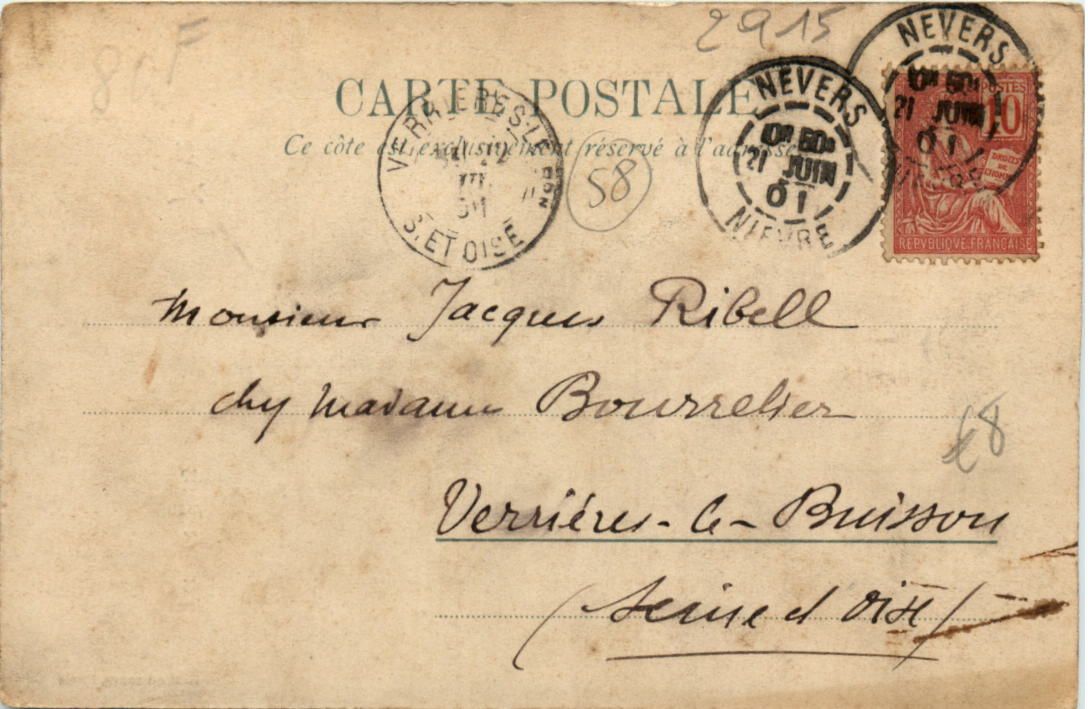 2915
80F
CARTE POSTALE
Ce côte est exclusivement réservé à l'adresse
VERRIERES-LE-BON
S. ET OISE
58
NEVERS
21 JUIN
01
NIEVRE
NEVERS
21 JUIN
01
NIEVRE
POSTES
10
DROITS
DE
L'HOMME
REPVBLIQVE FRANÇAISE
Monsieur Jacques Ribell
chez Madame Bourrelier
Verrières-le-Buisson
(Seine et Oise)